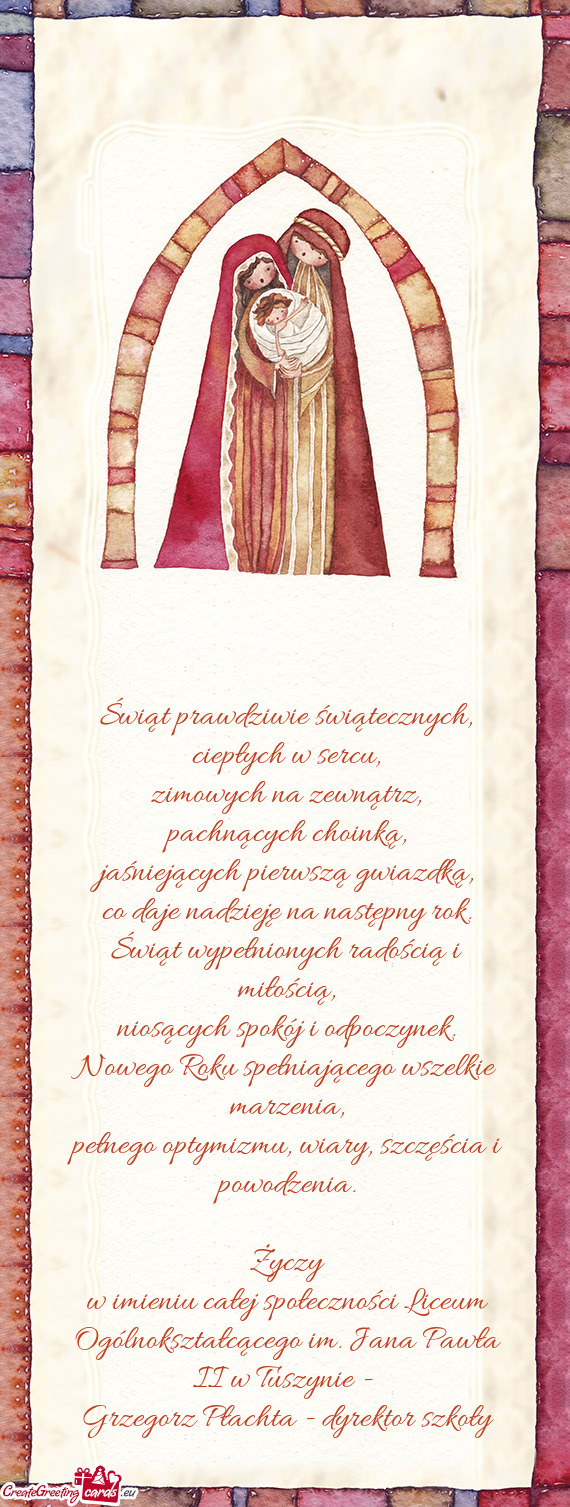 Świąt prawdziwie świątecznych,
ciepłych w sercu,
zimowych na zewnątrz,
pachnących choinką,
jaśniejących pierwszą gwiazdką,
co daje nadzieję na następny rok.
Świąt wypełnionych radością i
miłością,
niosących spokój i odpoczynek.
Nowego Roku spełniającego wszelkie
marzenia,
pełnego optymizmu, wiary, szczęścia i
powodzenia.
Życzy
w imieniu całej społeczności Liceum
Ogólnokształcącego im. Jana Pawła
II w Tuszynie -
Grzegorz Płachta - dyrektor szkoły
CreateGreeting cards .eu